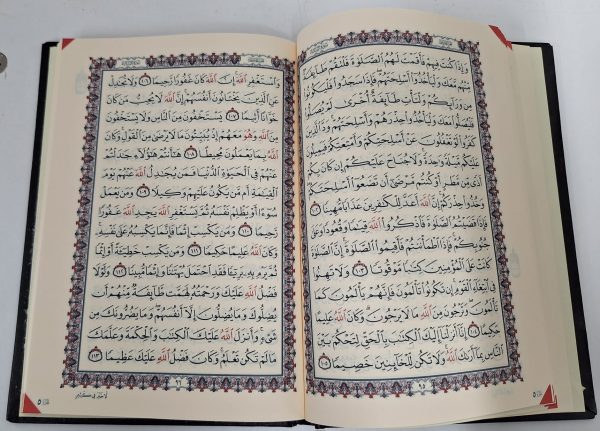 وَإِذَا كُنتَ فِيهِمْ فَأَقَمْتَ لَهُمُ ٱلصَّلَوٰةَ فَلْتَقُمْ طَآئِفَةٌ
مِّنْهُم مَّعَكَ وَلْيَأْخُذُوٓا۟ أَسْلِحَتَهُمْ فَإِذَا سَجَدُوا۟ فَلْيَكُونُوا۟
مِن وَرَآئِكُمْ وَلْتَأْتِ طَآئِفَةٌ أُخْرَىٰ لَمْ يُصَلُّوا۟
فَلْيُصَلُّوا۟ مَعَكَ وَلْيَأْخُذُوا۟ حِذْرَهُمْ وَأَسْلِحَتَهُمْ ۗ وَدَّ ٱلَّذِينَ
كَفَرُوا۟ لَوْ تَغْفُلُونَ عَنْ أَسْلِحَتِكُمْ وَأَمْتِعَتِكُمْ فَيَمِيلُونَ
عَلَيْكُم مَّيْلَةً وَٰحِدَةً ۚ وَلَا جُنَاحَ عَلَيْكُمْ إِن كَانَ بِكُمْ
أَذًى مِّن مَّطَرٍ أَوْ كُنتُم مَّرْضَىٰٓ أَن تَضَعُوٓا۟ أَسْلِحَتَكُمْ ۖ
وَخُذُوا۟ حِذْرَكُمْ ۗ إِنَّ ٱللَّهَ أَعَدَّ لِلْكَٰفِرِينَ عَذَابًا مُّهِينًا ١٠٢
فَإِذَا قَضَيْتُمُ ٱلصَّلَوٰةَ فَٱذْكُرُوا۟ ٱللَّهَ قِيَٰمًا وَقُعُودًا وَعَلَىٰ
جُنُوبِكُمْ ۚ فَإِذَا ٱطْمَأْنَنتُمْ فَأَقِيمُوا۟ ٱلصَّلَوٰةَ ۚ إِنَّ ٱلصَّلَوٰةَ
كَانَتْ عَلَى ٱلْمُؤْمِنِينَ كِتَٰبًا مَّوْقُوتًا ١٠٣ وَلَا تَهِنُوا۟
فِى ٱبْتِغَآءِ ٱلْقَوْمِ ۖ إِن تَكُونُوا۟ تَأْلَمُونَ فَإِنَّهُمْ يَأْلَمُونَ كَمَا
تَأْلَمُونَ ۖ وَتَرْجُونَ مِنَ ٱللَّهِ مَا لَا يَرْجُونَ ۗ وَكَانَ ٱللَّهُ عَلِيمًا
حَكِيمًا ١٠٤ إِنَّآ أَنزَلْنَآ إِلَيْكَ ٱلْكِتَٰبَ بِٱلْحَقِّ لِتَحْكُمَ بَيْنَ
ٱلنَّاسِ بِمَآ أَرَىٰكَ ٱللَّهُ ۚ وَلَا تَكُن لِّلْخَآئِنِينَ خَصِيمًا ١٠٥
٩٥
٥
وَٱسْتَغْفِرِ ٱللَّهَ ۖ إِنَّ ٱللَّهَ كَانَ غَفُورًا رَّحِيمًا ١٠٦ وَلَا تُجَٰدِلْ
عَنِ ٱلَّذِينَ يَخْتَانُونَ أَنفُسَهُمْ ۚ إِنَّ ٱللَّهَ لَا يُحِبُّ مَن كَانَ
خَوَّانًا أَثِيمًا ١٠٧ يَسْتَخْفُونَ مِنَ ٱلنَّاسِ وَلَا يَسْتَخْفُونَ
مِنَ ٱللَّهِ وَهُوَ مَعَهُمْ إِذْ يُبَيِّتُونَ مَا لَا يَرْضَىٰ مِنَ ٱلْقَوْلِ ۚ وَكَانَ
ٱللَّهُ بِمَا يَعْمَلُونَ مُحِيطًا ١٠٨ هَٰٓأَنتُمْ هَٰٓؤُلَآءِ جَٰدَلْتُمْ
عَنْهُمْ فِى ٱلْحَيَوٰةِ ٱلدُّنْيَا فَمَن يُجَٰدِلُ ٱللَّهَ عَنْهُمْ يَوْمَ
ٱلْقِيَٰمَةِ أَم مَّن يَكُونُ عَلَيْهِمْ وَكِيلًا ١٠٩ وَمَن يَعْمَلْ
سُوٓءًا أَوْ يَظْلِمْ نَفْسَهُۥ ثُمَّ يَسْتَغْفِرِ ٱللَّهَ يَجِدِ ٱللَّهَ غَفُورًا
رَّحِيمًا ١١٠ وَمَن يَكْسِبْ إِثْمًا فَإِنَّمَا يَكْسِبُهُۥ عَلَىٰ نَفْسِهِۦ ۚ
وَكَانَ ٱللَّهُ عَلِيمًا حَكِيمًا ١١١ وَمَن يَكْسِبْ خَطِيٓـَٔةً أَوْ إِثْمًا
ثُمَّ يَرْمِ بِهِۦ بَرِيٓـًٔا فَقَدِ ٱحْتَمَلَ بُهْتَٰنًا وَإِثْمًا مُّبِينًا ١١٢ وَلَوْلَا
فَضْلُ ٱللَّهِ عَلَيْكَ وَرَحْمَتُهُۥ لَهَمَّت طَّآئِفَةٌ مِّنْهُمْ أَن
يُضِلُّوكَ وَمَا يُضِلُّونَ إِلَّآ أَنفُسَهُمْ ۖ وَمَا يَضُرُّونَكَ مِن
شَىْءٍ ۚ وَأَنزَلَ ٱللَّهُ عَلَيْكَ ٱلْكِتَٰبَ وَٱلْحِكْمَةَ وَعَلَّمَكَ
مَا لَمْ تَكُن تَعْلَمُ ۚ وَكَانَ فَضْلُ ٱللَّهِ عَلَيْكَ عَظِيمًا ١١٣
٩٦
لَا خَيْرَ فِي كَثِيرٍ
٥